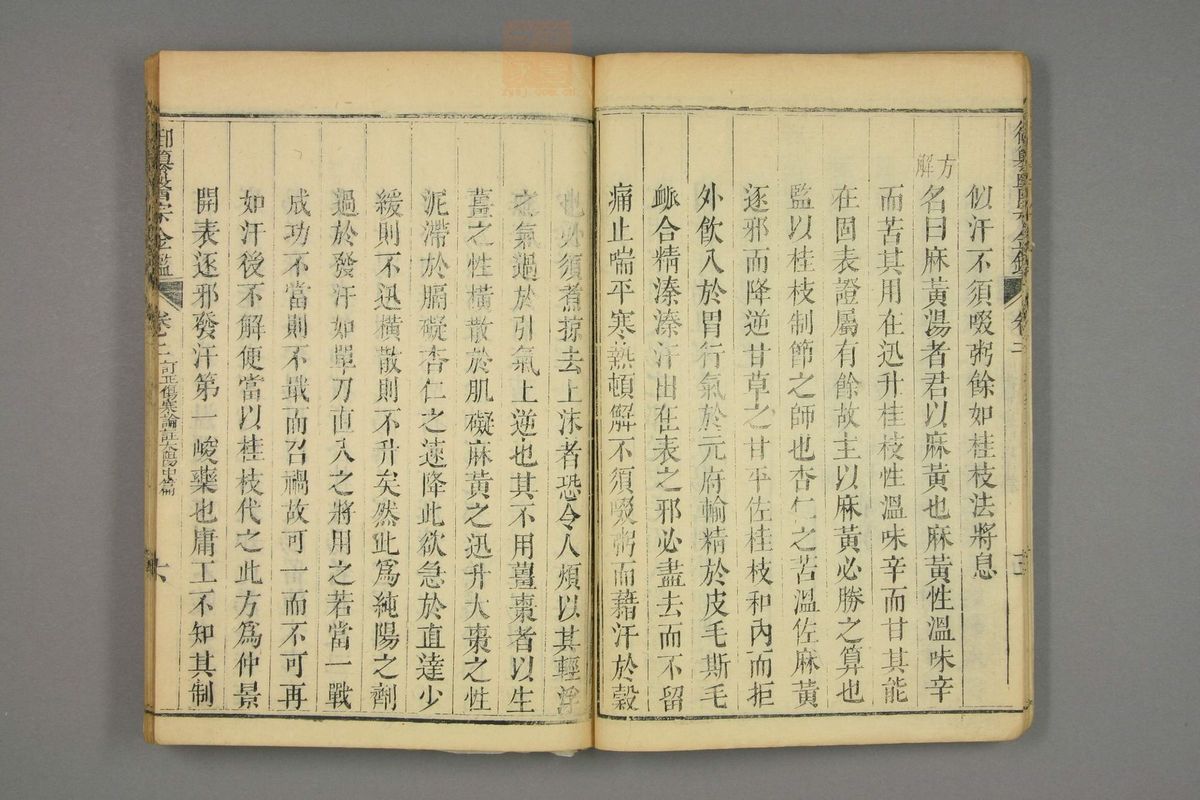 似汗不須啜粥餘如桂枝法將息
方解
名曰麻黃湯者君以麻黃也麻黃性溫味辛
而苦其用在迅升桂枝性溫味辛而甘其能
在固表證屬有餘故主以麻黃必勝之算也
監以桂枝制節之師也杏仁之苦溫佐麻黃
逐邪而降逆甘草之甘平佐桂枝和內而拒
外飲入於胃行氣於元府輸精於皮毛斯毛
脈合精溱溱汗出在表之邪必盡去而不留
痛止喘平寒熱頓解不須啜粥而藉汗於穀
也必須煮掠去上沫者恐令人煩以其輕浮
之氣過於引氣上逆也其不用薑棗者以生
薑之性橫散於肌礙麻黃之迅升大棗之性
泥滯於膈礙杏仁之速降此欲急於直達少
緩則不迅橫散則不升矣然此為純陽之劑
過於發汗如單刀直入之將用之若當一戰
成功不當則不戢而召禍故可一而不可再
如汗後不解便當以桂枝代之此方為仲景
開表逐邪發汗第一峻藥也庸工不知其制
御纂醫宗金鑑 卷之二 訂正傷寒論註太陽中篇 六